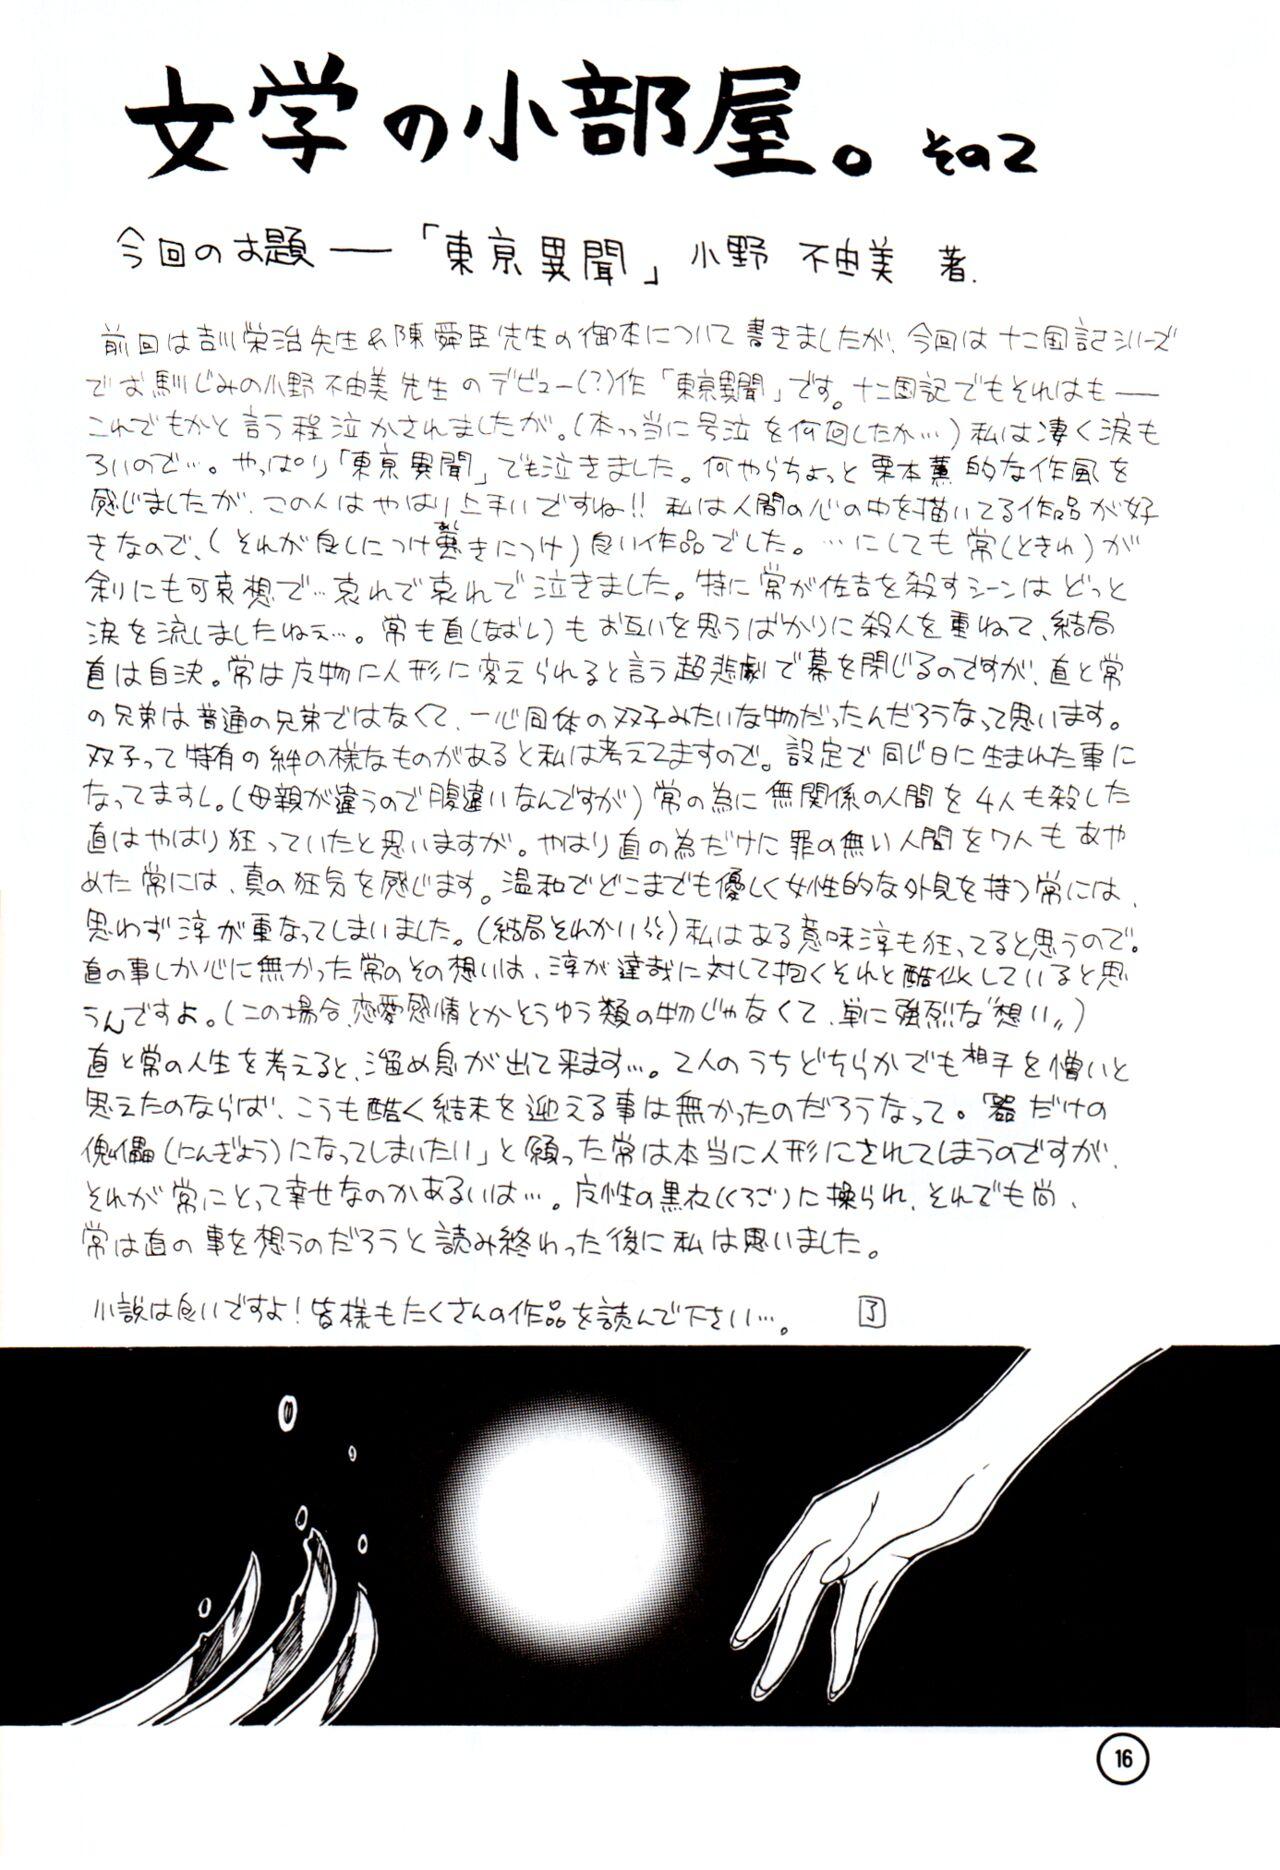 文学の小部屋。その2
今回のお題 ―「東亰異聞」小野 不由美 著.
前回は吉川栄治先生&陳舜臣先生の御本について書きましたが、今回は十二国記シリーズ
でお馴じみの小野不由美先生のデビュー(?)作「東亰異聞」です。十二国記でもそれはも――
これでもかと言う程泣かされましたが。(本っ当に号泣を何回したか…)私は凄く涙も
ろいので…。やっぱり「東亰異聞」でも泣きました。何やらちょっと栗本薫的な作風を
感じましたが、この人はやはり上手いですね!!私は人間の心の中を描いてる作品が好
きなので、(それが良しにつけ悪きにつけ)良い作品でした。…にしても常(ときわ)が
余りにも可哀想で…哀れで哀れで泣きました。特に常が佐吉を殺すシーンはどっと
涙を流しましたねぇ…。常も直(なおし)もお互いを思うばかりに殺人を重ねて、結局
直は自決。常は左物に人形に変えられると言う超悲劇で幕を閉じるのですが、直と常
の兄弟は普通の兄弟ではなくて、一心同体の双子みたいな物だったんだろうなって思います。
双子って特有の絆の様なものがあると私は考えてますので。設定で同じ日に生まれた事に
なってますし。(母親が違うので腹違いなんですが)常の為に無関係の人間を4人も殺した
直はやはり狂っていたと思いますが。やはり直の為だけに罪の無い人間を7人もあや
めた常には、真の狂気を感じます。温和でどこまでも優しく女性的な外見を持つ常には、
思わず淳が重なってしまいました。(結局それかい)私はある意味淳も狂ってると思うので。
直の事しか心に無かった常のその想いは、淳が達哉に対して抱くそれと酷似していると思
うんですよ。(この場合、恋愛感情とかそうゆう類の物じゃなくて、単に強烈な〝想い〟)
直と常の人生を考えると、溜め息が出て来ます…。2人のうちどちらかでも相手を憎いと
思えたのならば、こうも酷く結末を迎える事は無かったのだろうなって。「器だけの
傀儡(にんぎょう)になってしまいたい」と願った常は本当に人形にされてしまうのですが、
それが常にとって幸せなのかあるいは…。左性の黒衣(くろご)に操られ、それでも尚、
常は直の事を想うのだろうと読み終わった後に私は思いました。
小説は良いですよ!皆様もたくさんの作品を読んで下さい…。 了
16